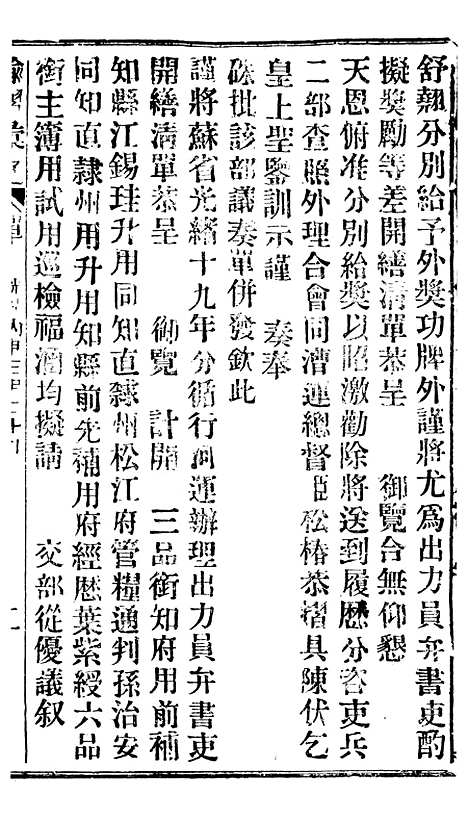 舒翹分別給予外獎功牌外謹將尤爲出力員弁書吏酌
擬獎勵等差開繕清單恭呈 御覽合無仰懇
天恩俯准分別給獎以昭激勸除將送到履歷分咨吏兵
二部查照外理合會同漕運總督臣松椿恭摺具陳伏乞
皇上聖鑒訓示謹 奏奉
硃批該部議奏單併發欽此
謹將蘇省光緒十九年分循行河運辦理出力員弁書吏
開繕清單恭呈 御覽 計開 三品銜知府用前補
知縣江錫珪升用同知直隸州松江府管糧通判孫治安
同知直隸州用升用知縣前先補用府經歷葉紫綬六品
銜主簿用試用巡檢福湉均擬請 交部從優議叙